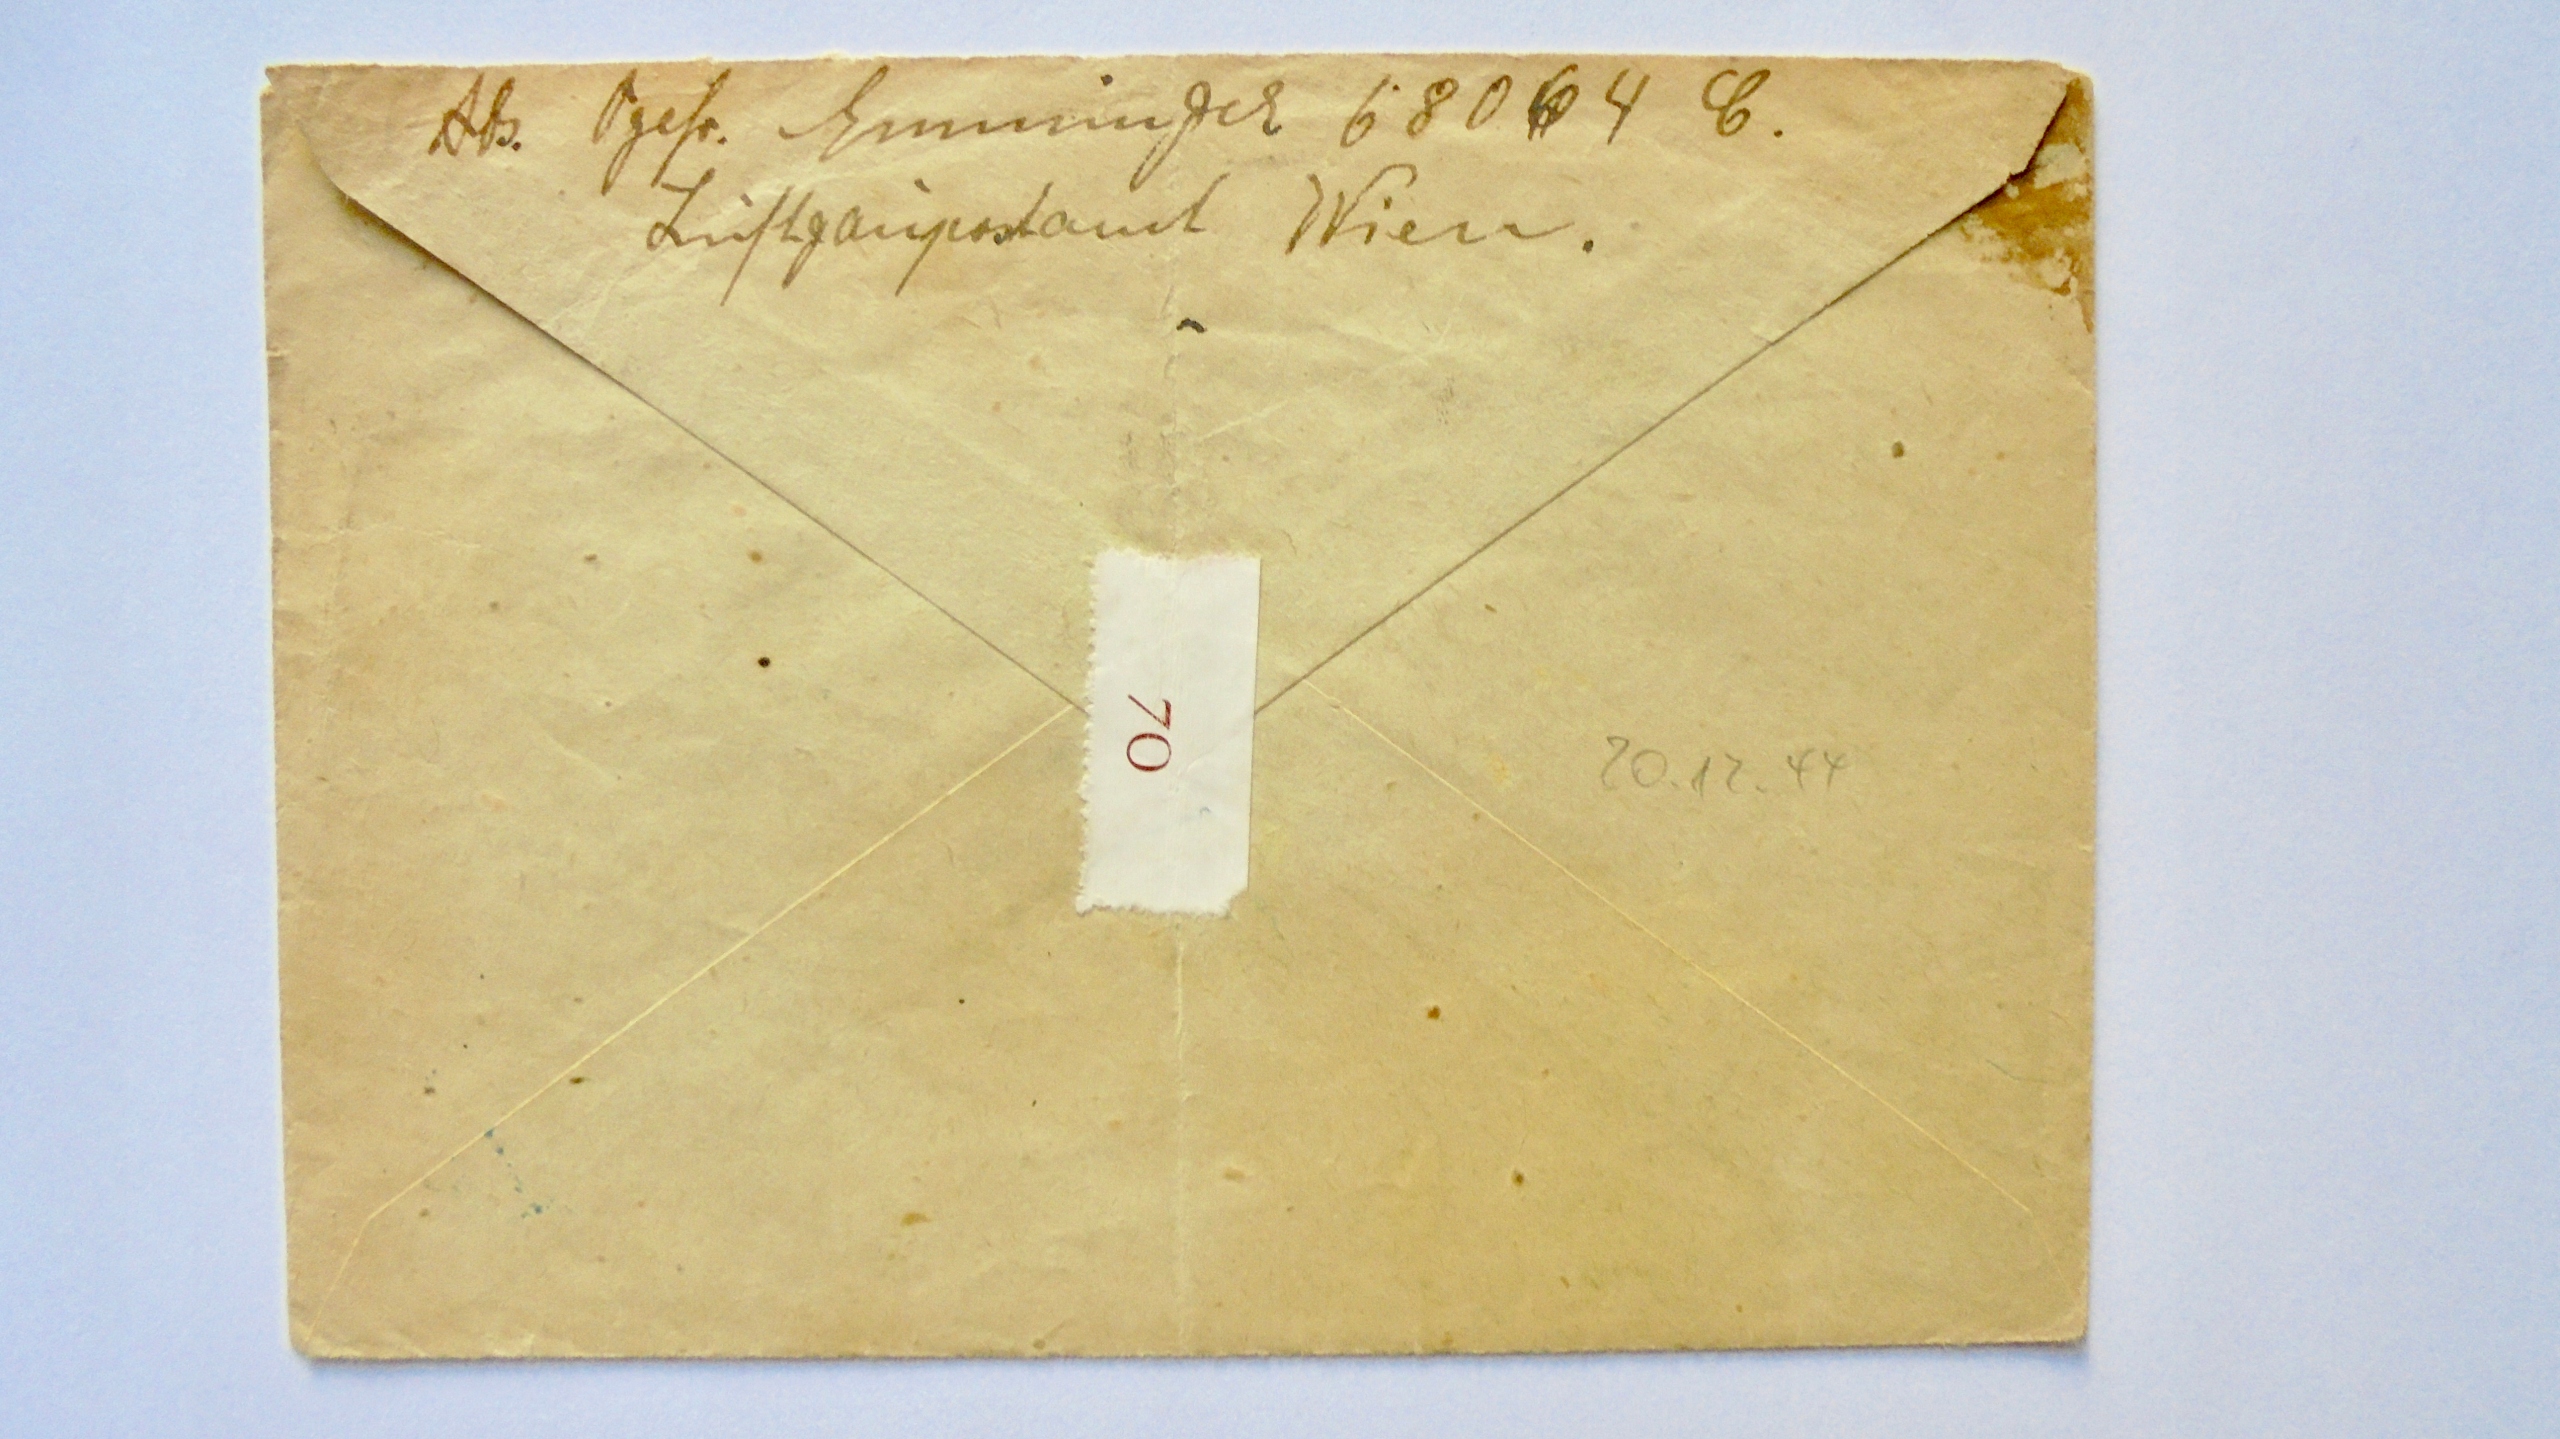 Abs. Ogefr. Emminger 68064 C.
Luftgaupostamt Wien.
70
20.12.44